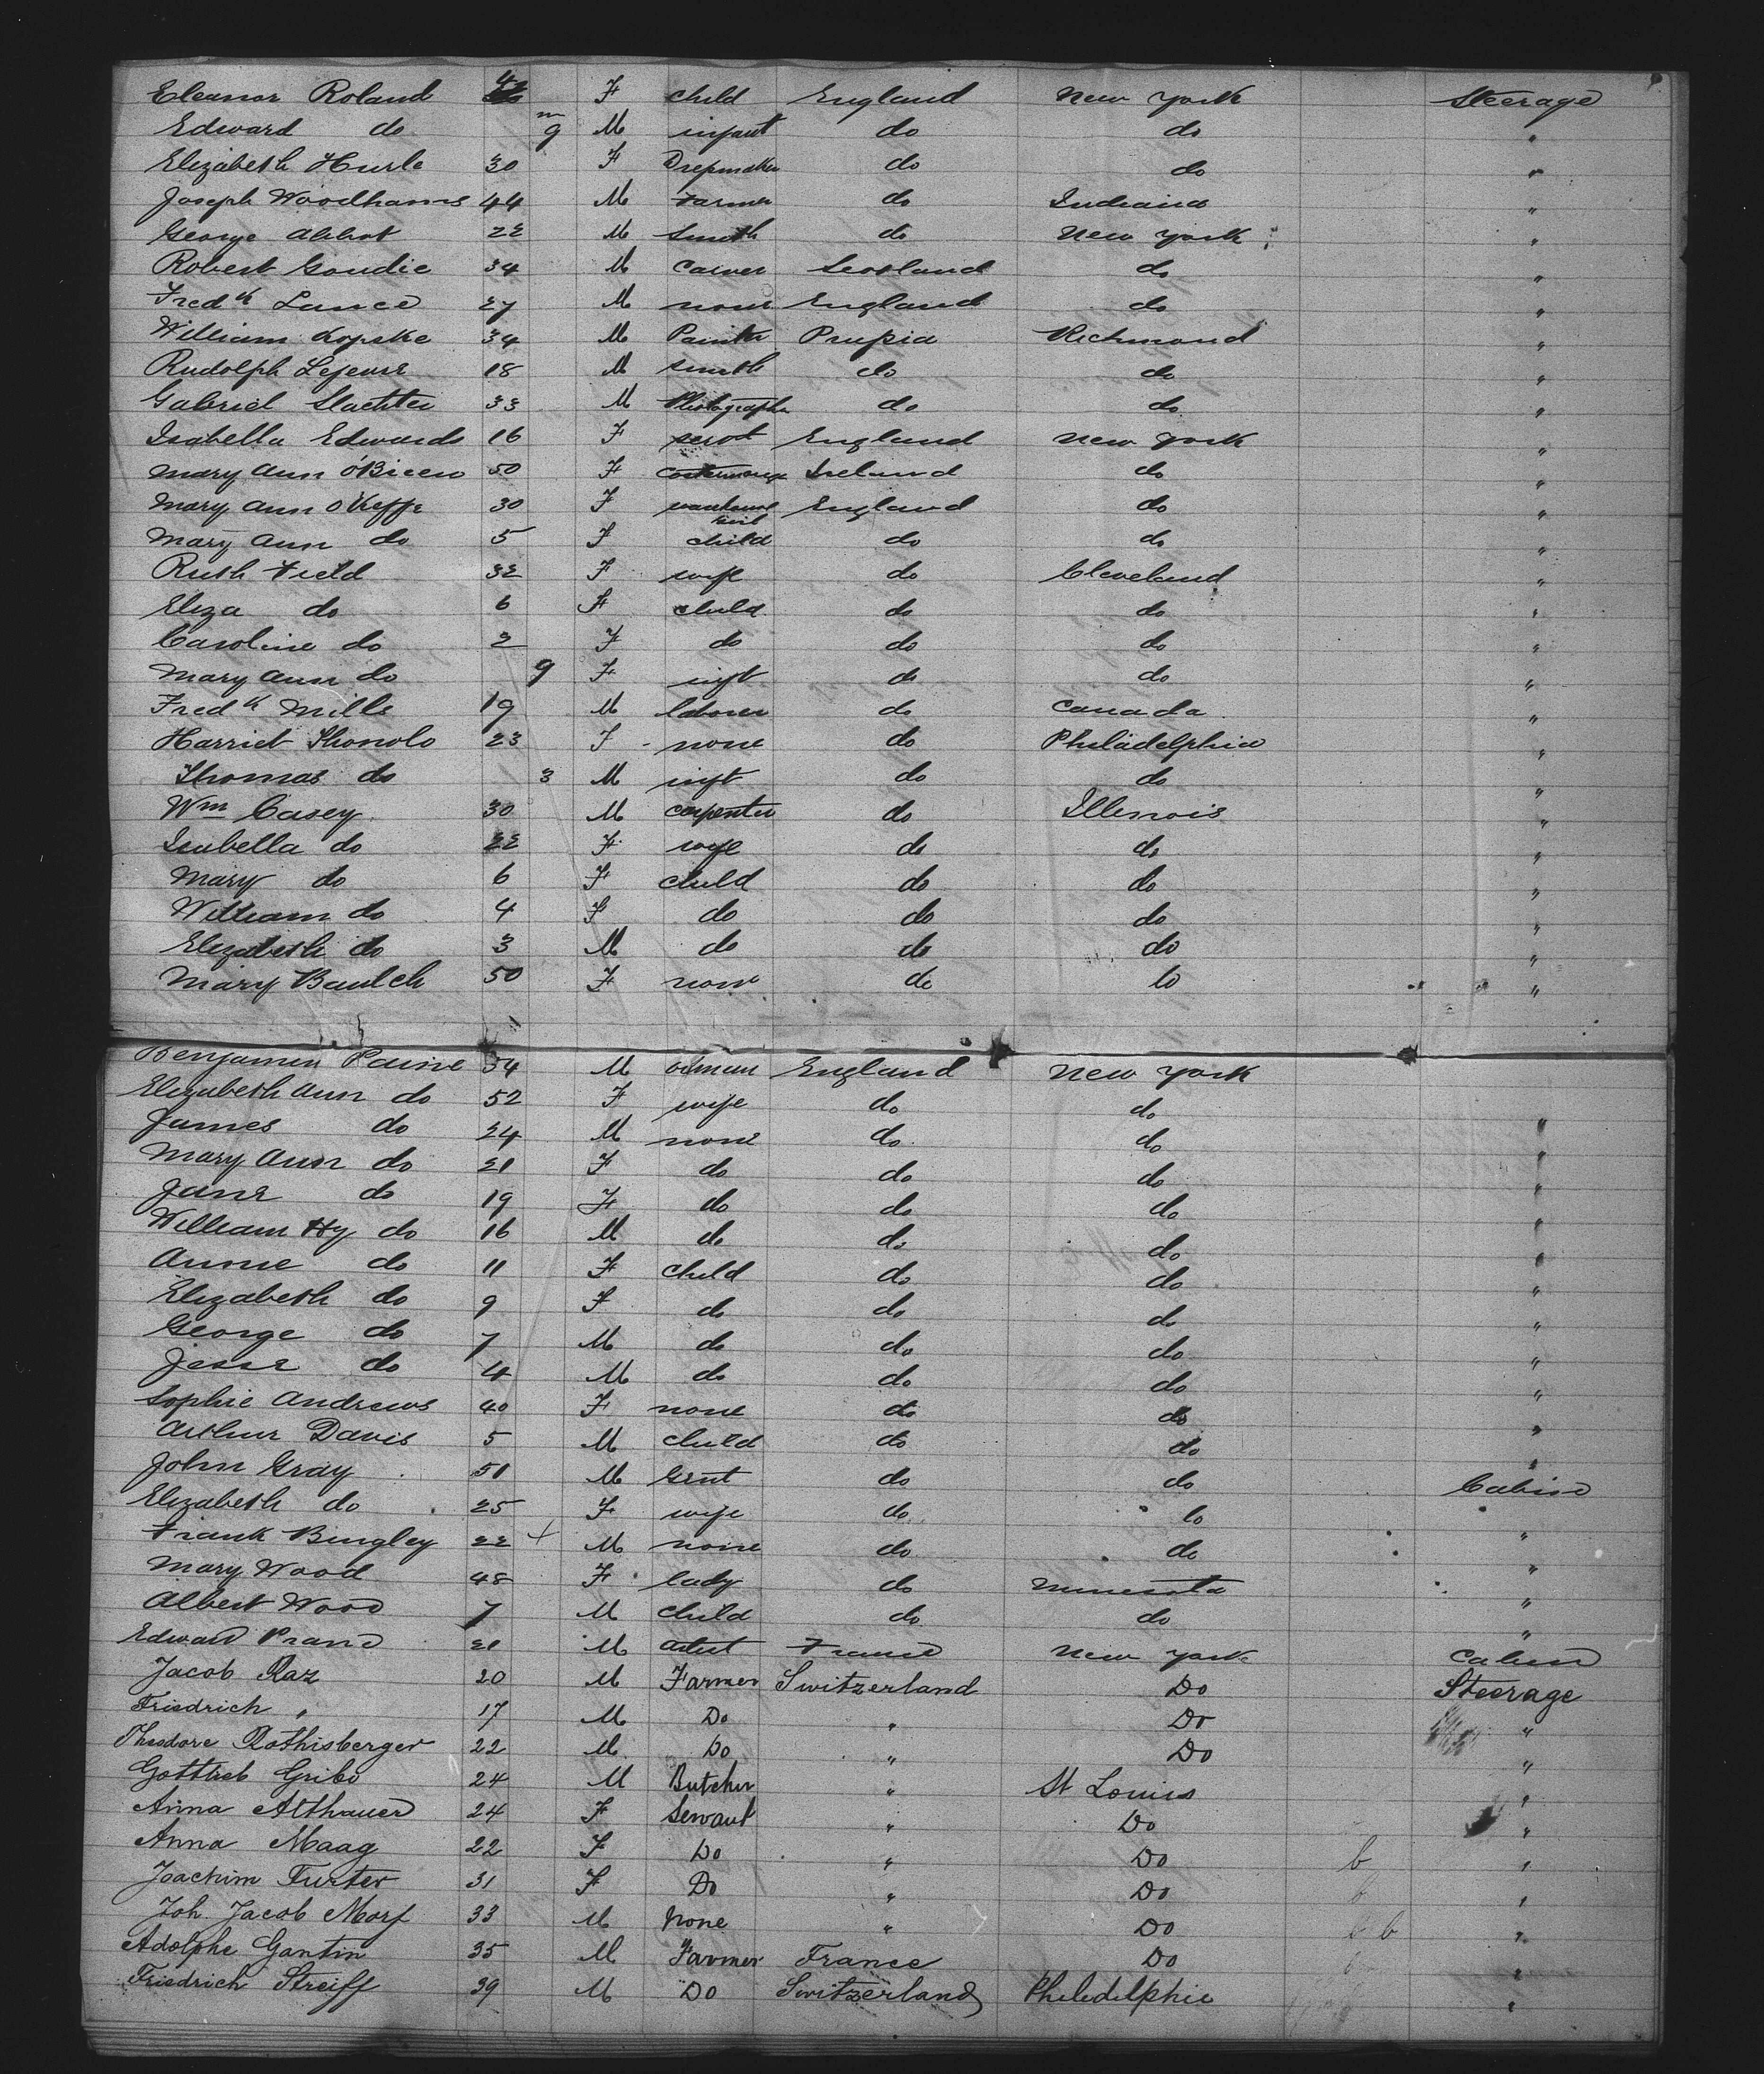 Eleanor Roland 4 F child England New York Steerage
Edward do 9 M infant do do "
Elizabeth Hurle 30 F Dressmaker do do "
Joseph Woodhams 44 M Farmer do Indiana "
George Abbot 22 M Smith do New York "
Robert Goudie 34 M Carver Scotland do "
Fredk Lance 27 M none England do "
William Kopske 34 M Painter Prussia Richmond "
Rudolph Lejeune 18 M smith do do "
Gabriel Slachter 33 M Photographer do do "
Isabella Edwards 16 F servt England New York "
Mary Ann O'Brien 50 F Ireland do "
Mary Ann O'Keffe 30 F England do "
Mary Ann do 5 F child do do "
Ruth Field 32 F wife do Cleveland "
Eliza do 6 F child do do "
Caroline do 2 F do do do "
Mary Ann do 9 F inft do do "
Fredk Mills 19 M laborer do Canada "
Harriet Shonolo 23 F none do Philadelphia "
Thomas do 3 M inft do do "
Wm Casey 30 M carpenter do Illenois "
Isabella do 22 F wife do do "
Mary do 6 F child do do "
William do 4 F do do do "
Elizabeth do 3 M do do do "
Mary Baulch 50 F none do do "
Benjamin Paine 54 M England New York
Elizabeth Ann do 52 F wife do do "
James do 24 M none do do "
Mary Ann do 21 F do do do "
Jane do 19 F do do do "
William Hy do 16 M do do do "
Annie do 11 F child do do "
Elizabeth do 9 F do do do "
George do 7 M do do do "
Jesse do 4 M do do do "
Sophie Andrews 40 F none do do "
Arthur Davis 5 M child do do "
John Gray 51 M Gent do do Cabin
Elizabeth do 25 F wife do do "
Frank Bingley 22 + M none do do "
Mary Wood 48 F lady do Minnesota "
Albert Wood 7 M child do do "
Edward Prand 21 M artist France New York Cabin
Jacob Raz 20 M Farmer Switzerland Do Steerage
Friedrich " 17 M Do " Do "
Theodore Rothisberger 22 M Do " Do "
Gottlieb Gribi 24 M Butcher " St Louis "
Anna Althauer 24 F Servant " Do "
Anna Maag 22 F Do " Do b "
Joachim Furter 31 F Do " Do b "
Joh. Jacob Morf 33 M None " Do b b "
Adolphe Gantin 35 M Farmer France Do "
Friedrich Streiff 39 M Do Switzerland Philedelphie "